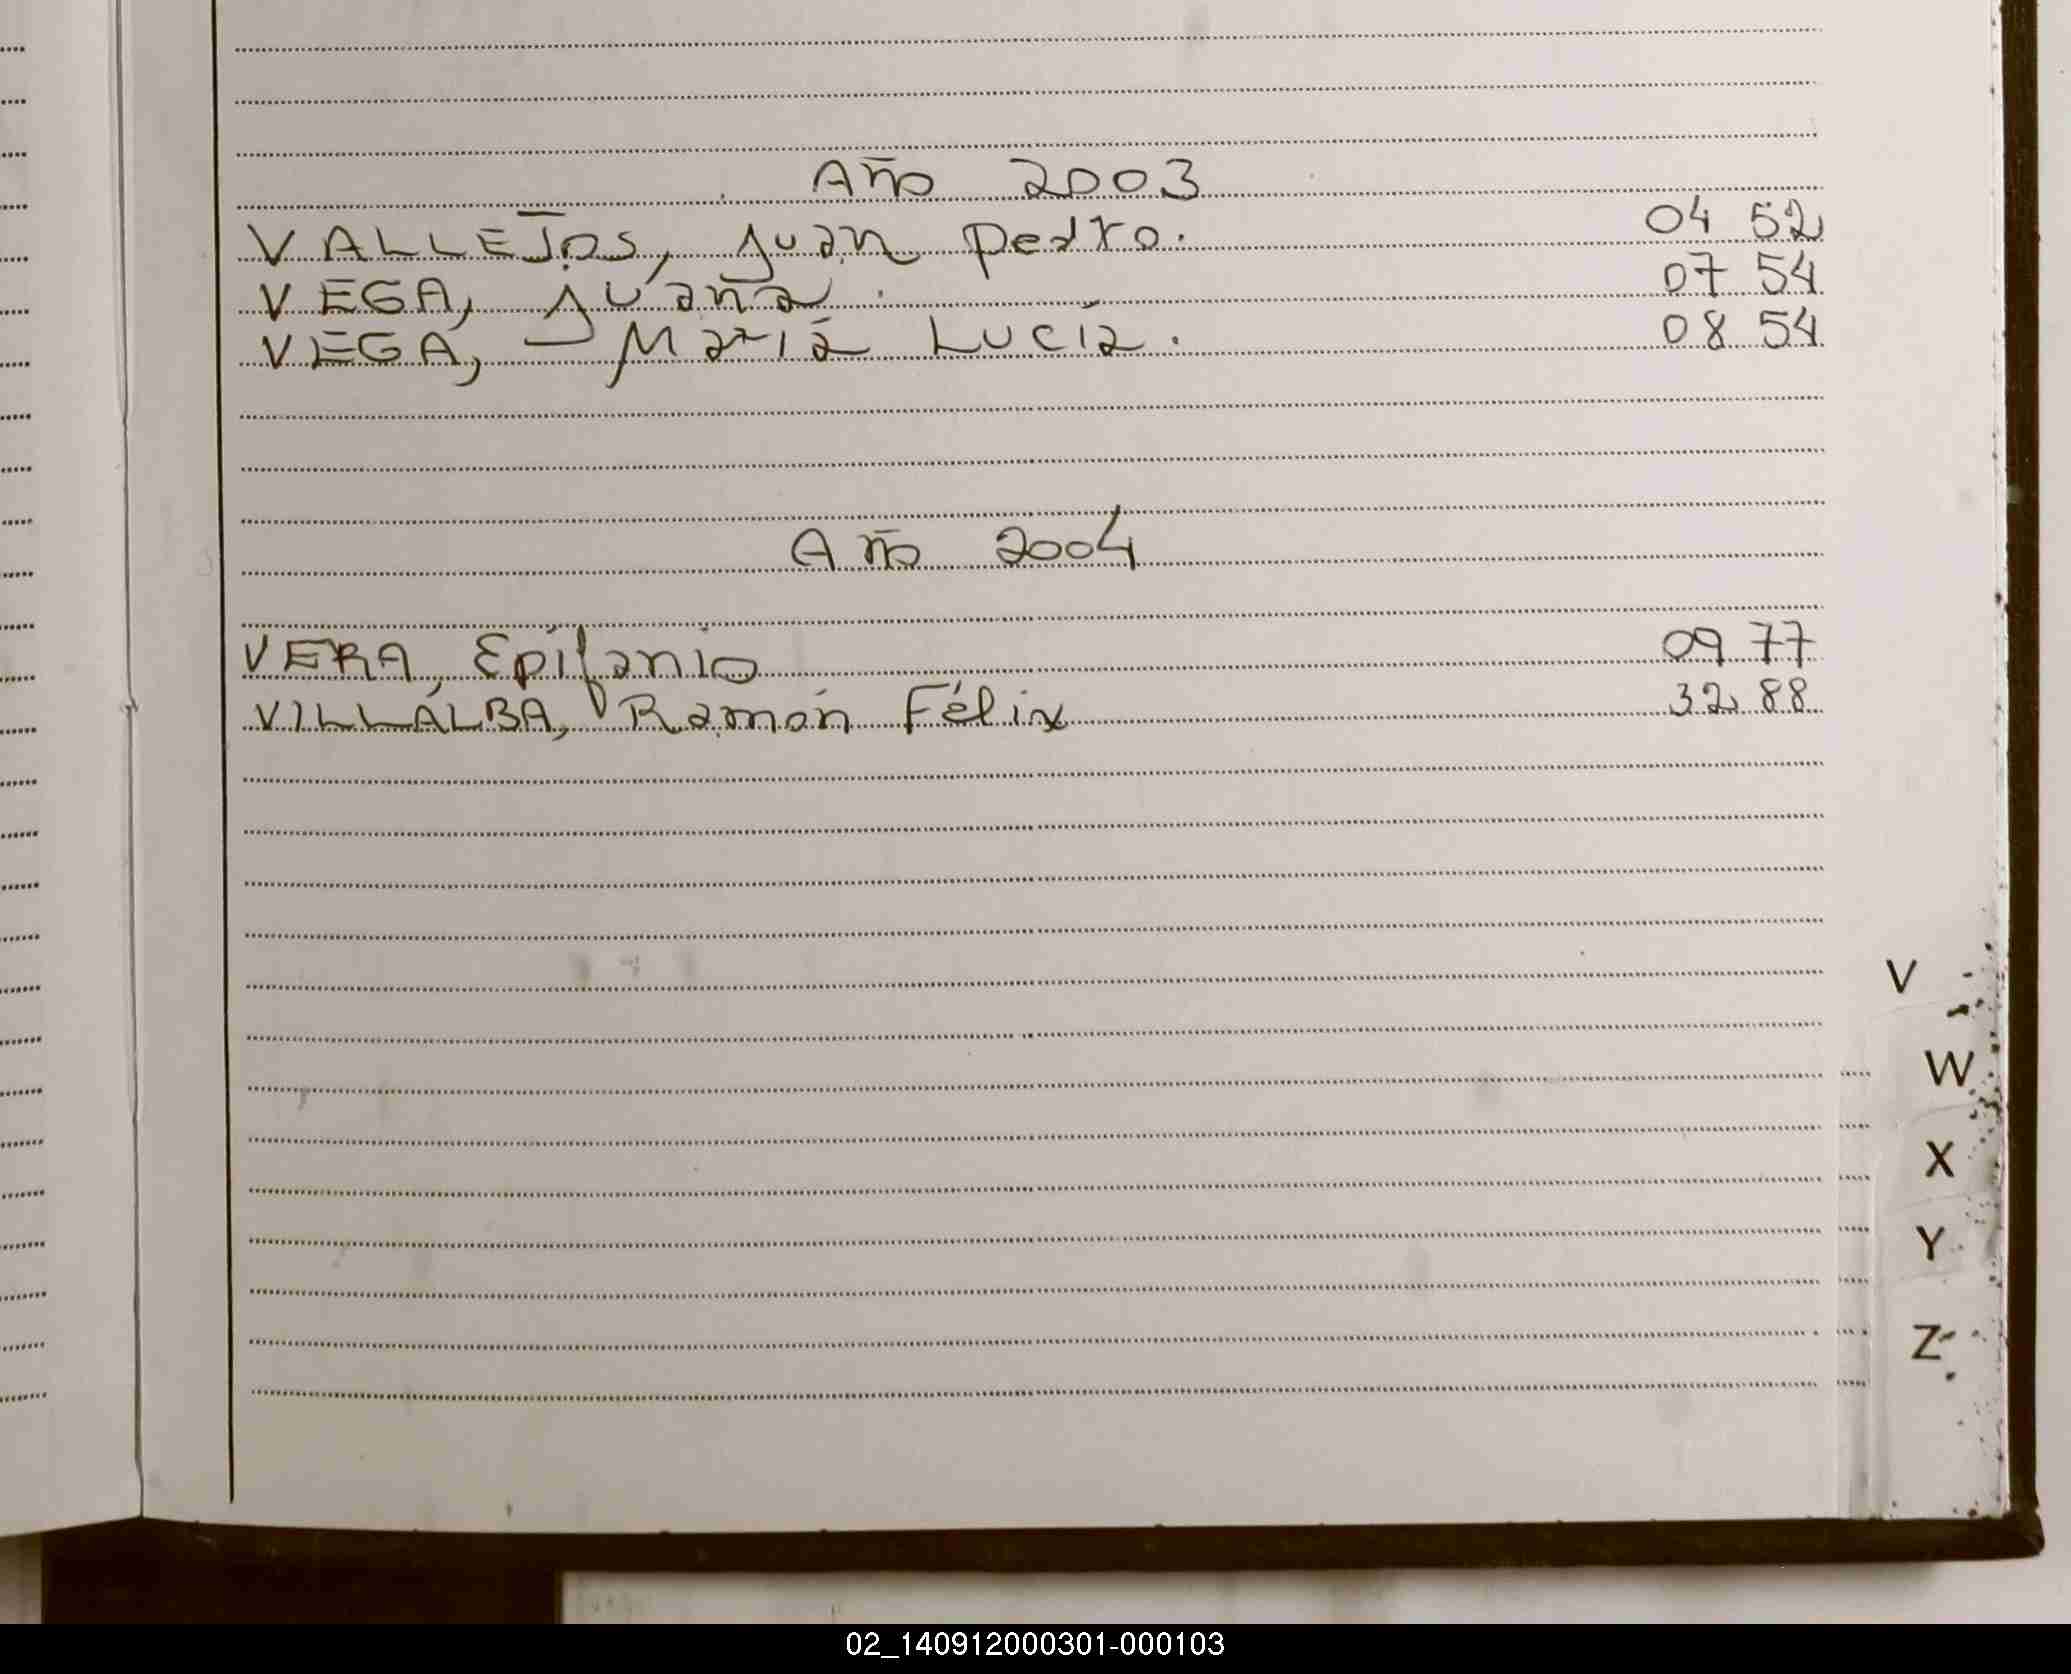 Año 2003
VALLEJOS, Juan Pedro. 04 52
VEGA, Juana. 07 54
VEGA, María Lucía. 08 54
Año 2004
VERA, Epifanio 09 77
VILLALBA, Ramón Félix 32 88
V
W
X
Y
Z
02_140912000301-000103